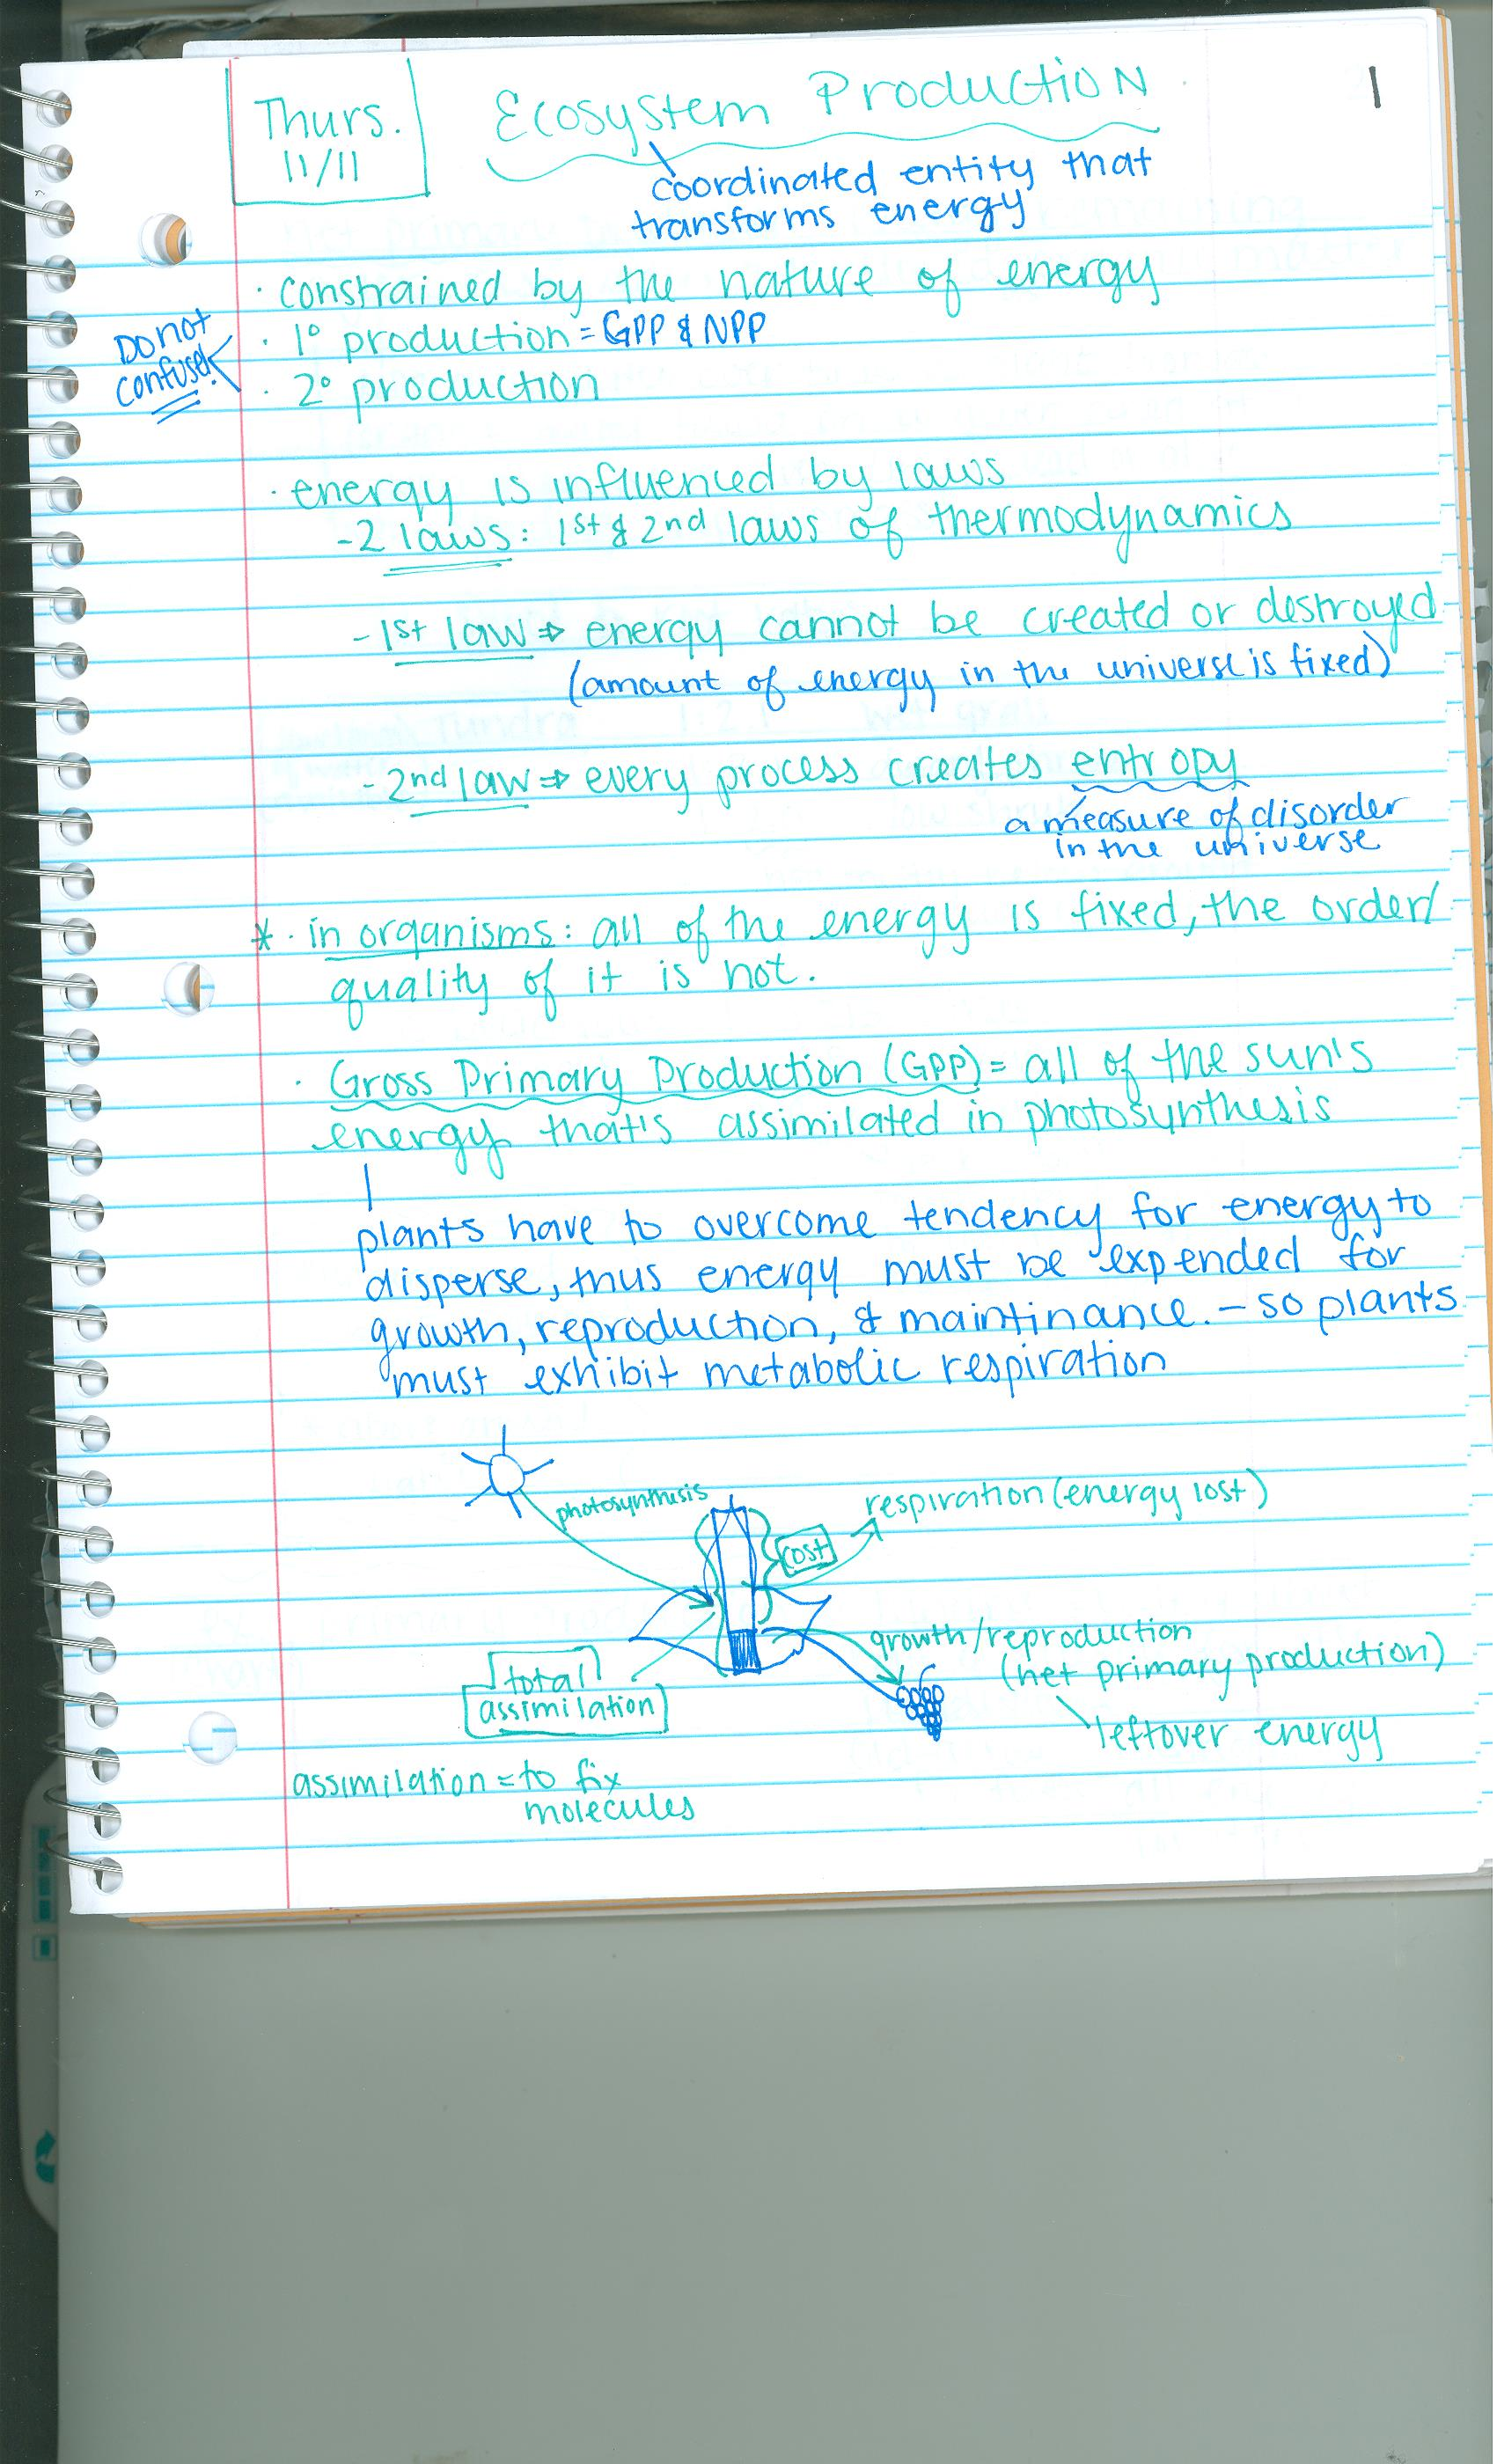 Thurs.
11/11
Ecosystem Production
1
coordinated entity that
transforms energy
· constrained by the nature of energy
· 1° production = GPP & NPP
· 2° production
Do not
confuse!
· energy is influenced by laws
- 2 laws: 1st & 2nd laws of thermodynamics
- 1st law ⇒ energy cannot be created or destroyed
(amount of energy in the universe is fixed)
- 2nd law ⇒ every process creates entropy
a measure of disorder
in the universe
* · in organisms: all of the energy is fixed, the order/
quality of it is not.
· Gross Primary Production (GPP) = all of the sun's
energy that's assimilated in photosynthesis
plants have to overcome tendency for energy to
disperse, thus energy must be expended for
growth, reproduction, & maintinance. - so plants
must exhibit metabolic respiration
photosynthesis
respiration (energy lost)
cost
growth/reproduction
(net primary production)
leftover energy
total
assimilation
assimilation = to fix
molecules